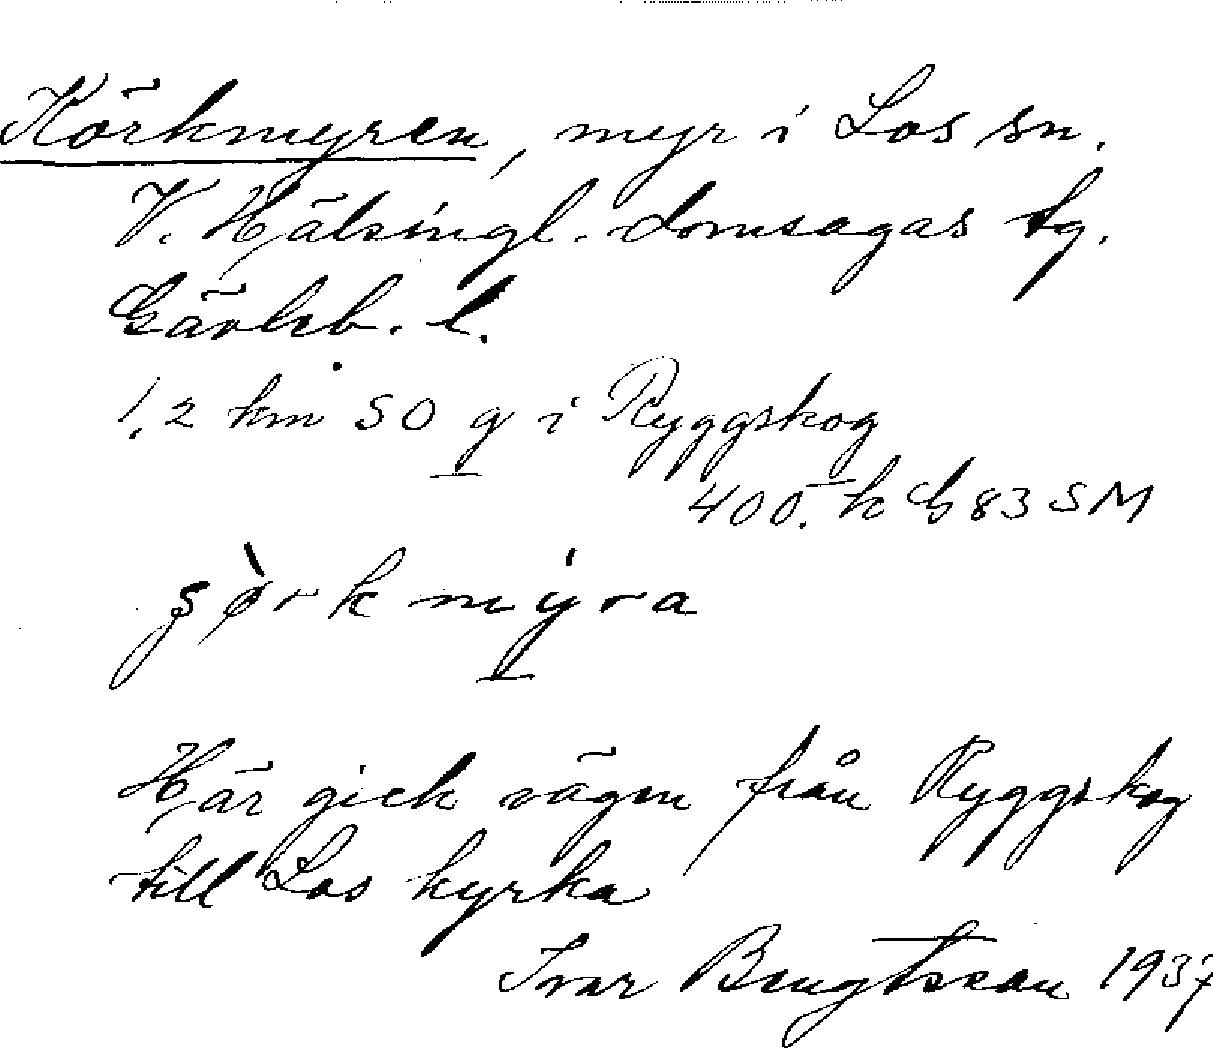 Körkmyren, myr i Los sn.
V. Hälsingl. domsagas tg.
Gävleb. l.
1,2 km SO g i Ryggskog
400. k G 83 SM
Här gick vägen från Ryggskog
till Los kyrka
Ivar Bengtsson 1937